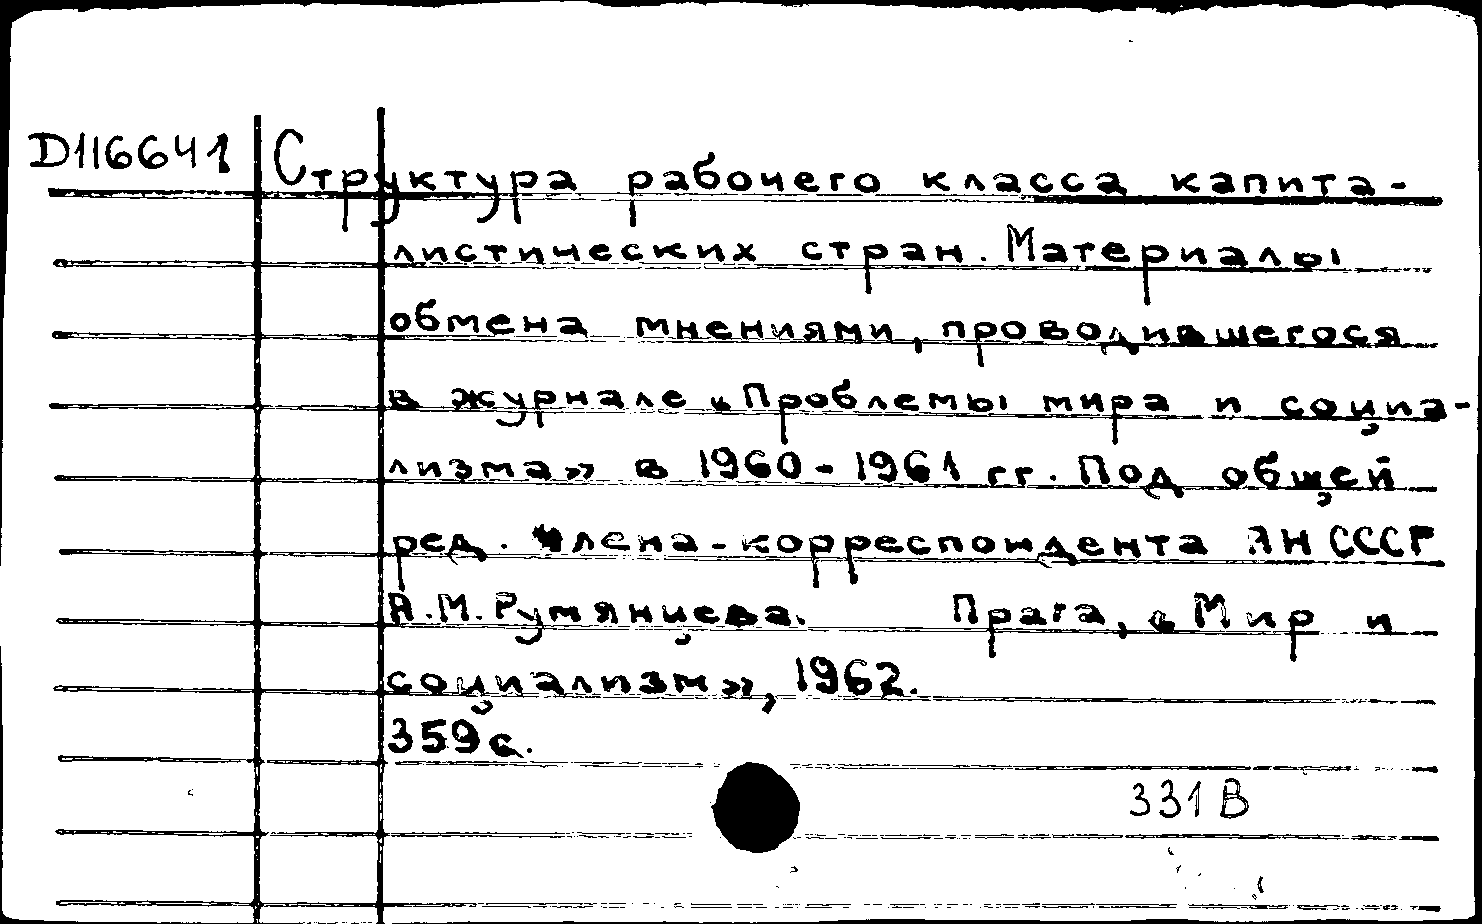 D116641 Структура рабочего класса капита-
листических стран. Материалы
обмена мнениями, проводившегося
в журнале «Проблемы мира и социа-
лизма» в 1960-1961 гг. Под общей
ред. члена-корреспондента АН СССР
А.М. Румянцева. Прага, «Мир и
социализм», 1962.
359 с.
331В